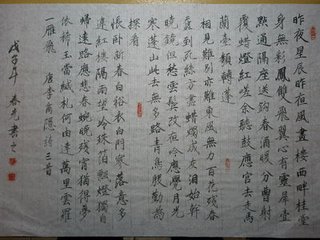 昨夜星辰昨夜風畫樓西畔桂堂
身無彩鳳雙飛翼心有靈犀壹
點通隔座送鈎春酒暖分曹射
覆蜡燈紅嗟余聽鼓應官去走馬
蘭臺類轉蓬
相見難別亦難東風無力百花殘春
蠶到死絲方盡蜡炬成灰泪始幹
曉鏡但愁雲鬢改夜吟應覺月光
寒蓬山此去無多路青鳥殷勤爲
探看
悵卧新春白袷衣白門寥落意多
違紅樓隔雨望冷珠箔飄燈獨自
歸遠路應悲春晼晚殘宵猶得夢
依稀玉璫緘札何由達萬里雲羅
一雁飛 唐李商隱詩三首
戊子年 春光書